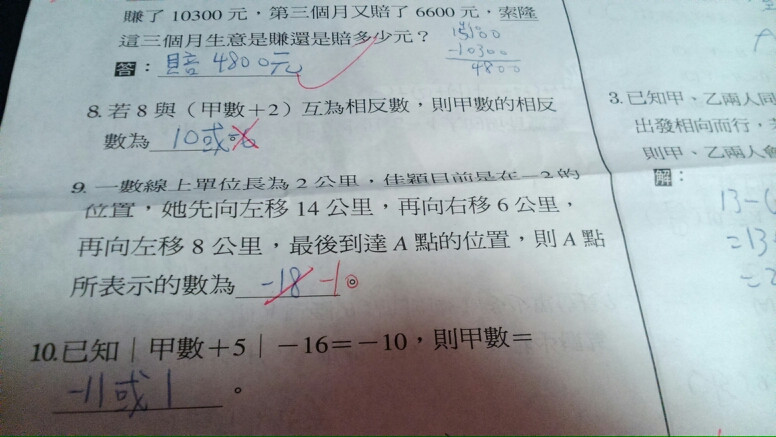 賺了 10300 元，第三個月又賠了 6600 元，索隆
這三個月生意是賺還是賠多少元？
15100
-10300
4800
答：賠 4800元
8. 若 8 與（甲數＋2）互為相反數，則甲數的相反
數為 10或
9. 一數線上單位長為 2 公里，佳穎目前是在 －2 的
位置，她先向左移 14 公里，再向右移 6 公里，
再向左移 8 公里，最後到達 A 點的位置，則 A 點
所表示的數為 -18 -10
10. 已知｜甲數＋5｜－16＝－10，則甲數＝
-11或 1 。
3. 已知甲、乙兩人同
出發相向而行，
則甲、乙兩人會
解：
13-(
=13
=2